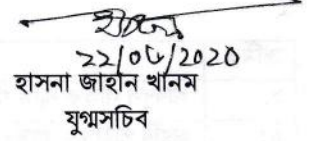 22/06/2020
হাসনা জাহান খানম
যুগ্মসচিব